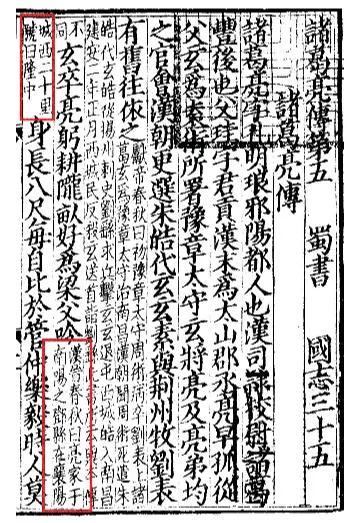 諸葛亮傳第五 蜀書 國志三十五
諸葛亮傳
諸葛亮字孔明琅邪陽都人也漢司隸校尉諸葛
豐後也父珪字君貢漢末為太山郡丞亮早孤從
父玄為袁術所署豫章太守玄將亮及亮弟均
之官會漢朝更選朱皓代玄玄素與荊州牧劉表
有舊往依之
獻帝春秋曰初豫章太守周術病卒劉表上諸
葛玄為豫章太守治南昌漢朝聞周術死遣朱
皓代玄皓從揚州刺史劉繇求兵擊玄玄退屯西城皓入南昌
建安二年正月西城民反殺玄送首詣繇此書所云與本傳
不同
玄卒亮躬耕隴畝好為梁父吟
漢晉春秋曰亮家于
南陽之鄧縣在襄陽
城西二十里
號曰隆中
身長八尺每自比於管仲樂毅時人莫